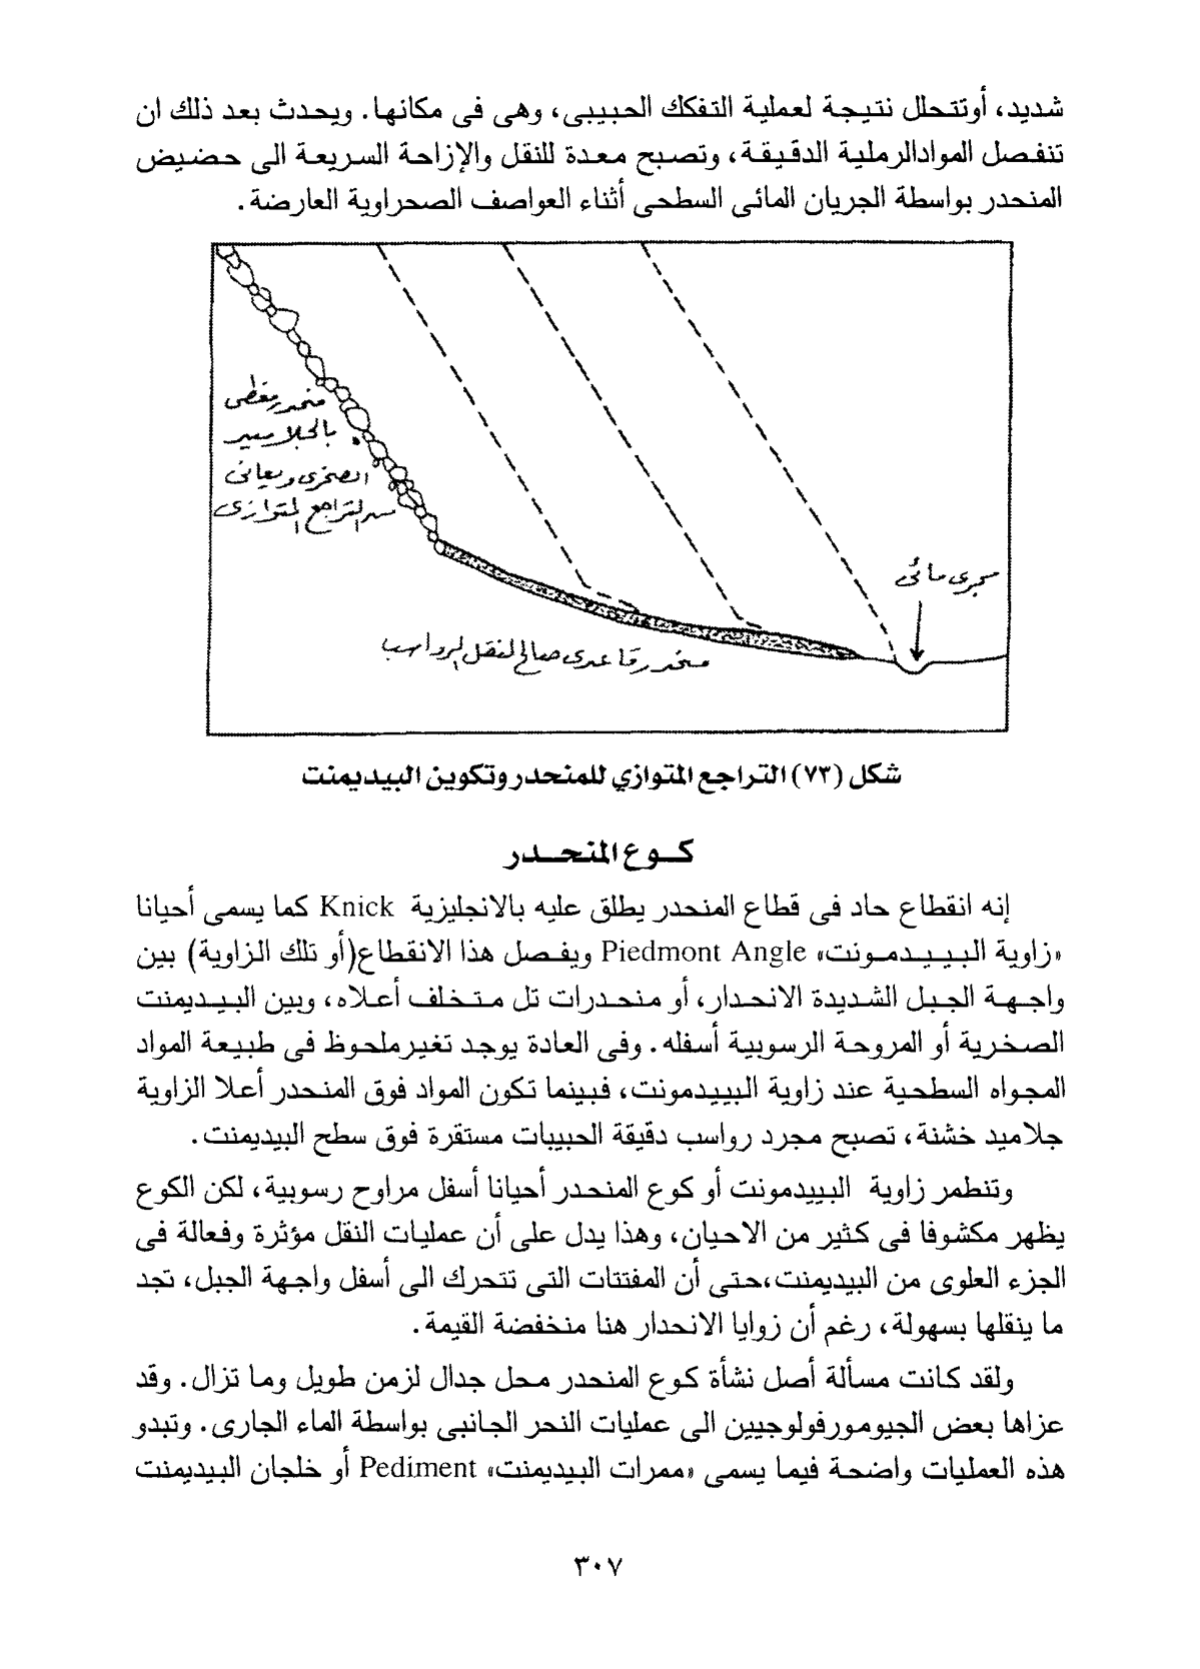 شديد، أوتتحلل نتيجة لعملية التفكك الحبيبى، وهى فى مكانها. ويحدث بعد ذلك ان
تنفصل الموادالرملية الدقيقة، وتصبح معدة للنقل والإزاحة السريعة الى حضيض
المنحدر بواسطة الجريان المائى السطحى أثناء العواصف الصحراوية العارضة.
منحدر مغطى
بالجلاميد
الصخرى ويعانى
من التراجع المتوازى
مجرى مائى
منحدر قاعدى صالح لنقل الرواسب
شكل (٧٣) التراجع المتوازي للمنحدر وتكوين البيديمنت
كوع المنحدر
إنه انقطاع حاد فى قطاع المنحدر يطلق عليه بالانجليزية Knick كما يسمى أحيانا
«زاوية البييدمونت» Piedmont Angle ويفصل هذا الانقطاع(أو تلك الزاوية) بين
واجهة الجبل الشديدة الانحدار، أو منحدرات تل متخلف أعلاه، وبين البيديمنت
الصخرية أو المروحة الرسوبية أسفله. وفى العادة يوجد تغيرملحوظ فى طبيعة المواد
المجواه السطحية عند زاوية البييدمونت، فبينما تكون المواد فوق المنحدر أعلا الزاوية
جلاميد خشنة، تصبح مجرد رواسب دقيقة الحبيبات مستقرة فوق سطح البيديمنت.
وتنطمر زاوية البييدمونت أو كوع المنحدر أحيانا أسفل مراوح رسوبية، لكن الكوع
يظهر مكشوفا فى كثير من الاحيان، وهذا يدل على أن عمليات النقل مؤثرة وفعالة فى
الجزء العلوى من البيديمنت،حتى أن المفتتات التى تتحرك الى أسفل واجهة الجبل، تجد
ما ينقلها بسهولة، رغم أن زوايا الانحدار هنا منخفضة القيمة.
ولقد كانت مسألة أصل نشأة كوع المنحدر محل جدال لزمن طويل وما تزال. وقد
عزاها بعض الجيومورفولوجيين الى عمليات النحر الجانبى بواسطة الماء الجارى. وتبدو
هذه العمليات واضحة فيما يسمى «ممرات البيديمنت» Pediment أو خلجان البيديمنت
٣٠٧